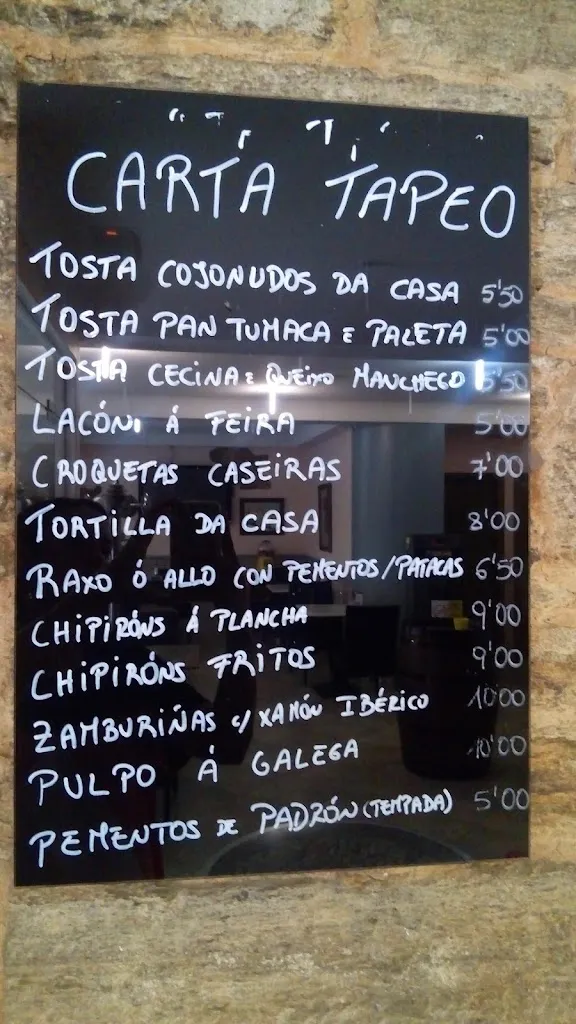 CARTA TAPEO
TOSTA COJONUDOS DA CASA 5'50
TOSTA PAN TUMACA E PALETA 5'00
TOSTA CECINA E QUEIXO MANCHEGO 5'50
LACÓN Á FEIRA 5'00
CROQUETAS CASEIRAS 7'00
TORTILLA DA CASA 8'00
RAXO Ó ALLO CON PEMENTOS/PATACAS 6'50
CHIPIRÓNS Á PLANCHA 9'00
CHIPIRÓNS FRITOS 9'00
ZAMBURIÑAS C/ XAMÓN IBÉRICO 10'00
PULPO Á GALEGA 10'00
PEMENTOS DE PADRÓN (TEMPADA) 5'00